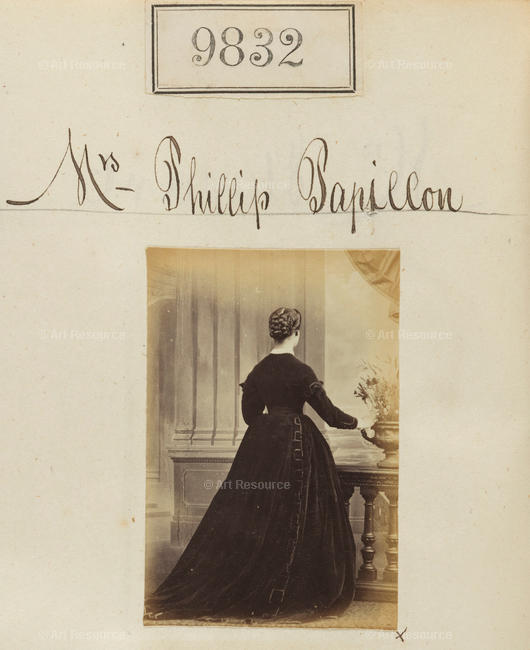 9832
Mrs Phillip Papillon
© Art Resource
© Art Resource
© Art Resource
© Art Resource
© Art Resource
© Art Resource
© Art Resource
x